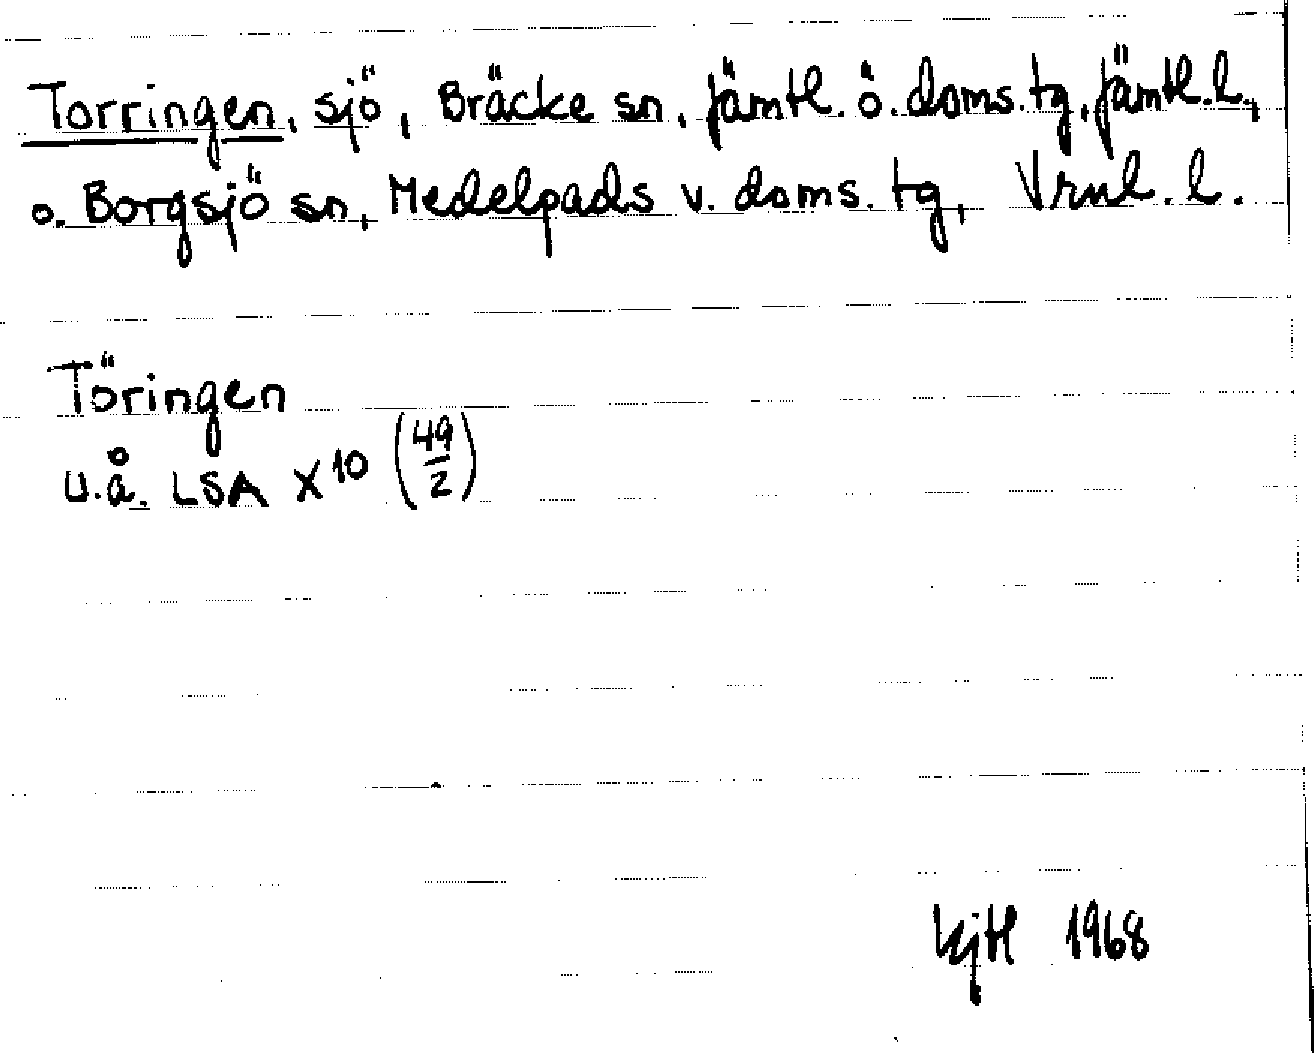 Torringen, sjö, Bräcke sn, Jämtl. ö. doms. tg, Jämtl. l.,
o. Borgsjö sn, Medelpads v. doms. tg, Vrnl. l.
Töringen
u.å. LSA X10 (49/2)
1968